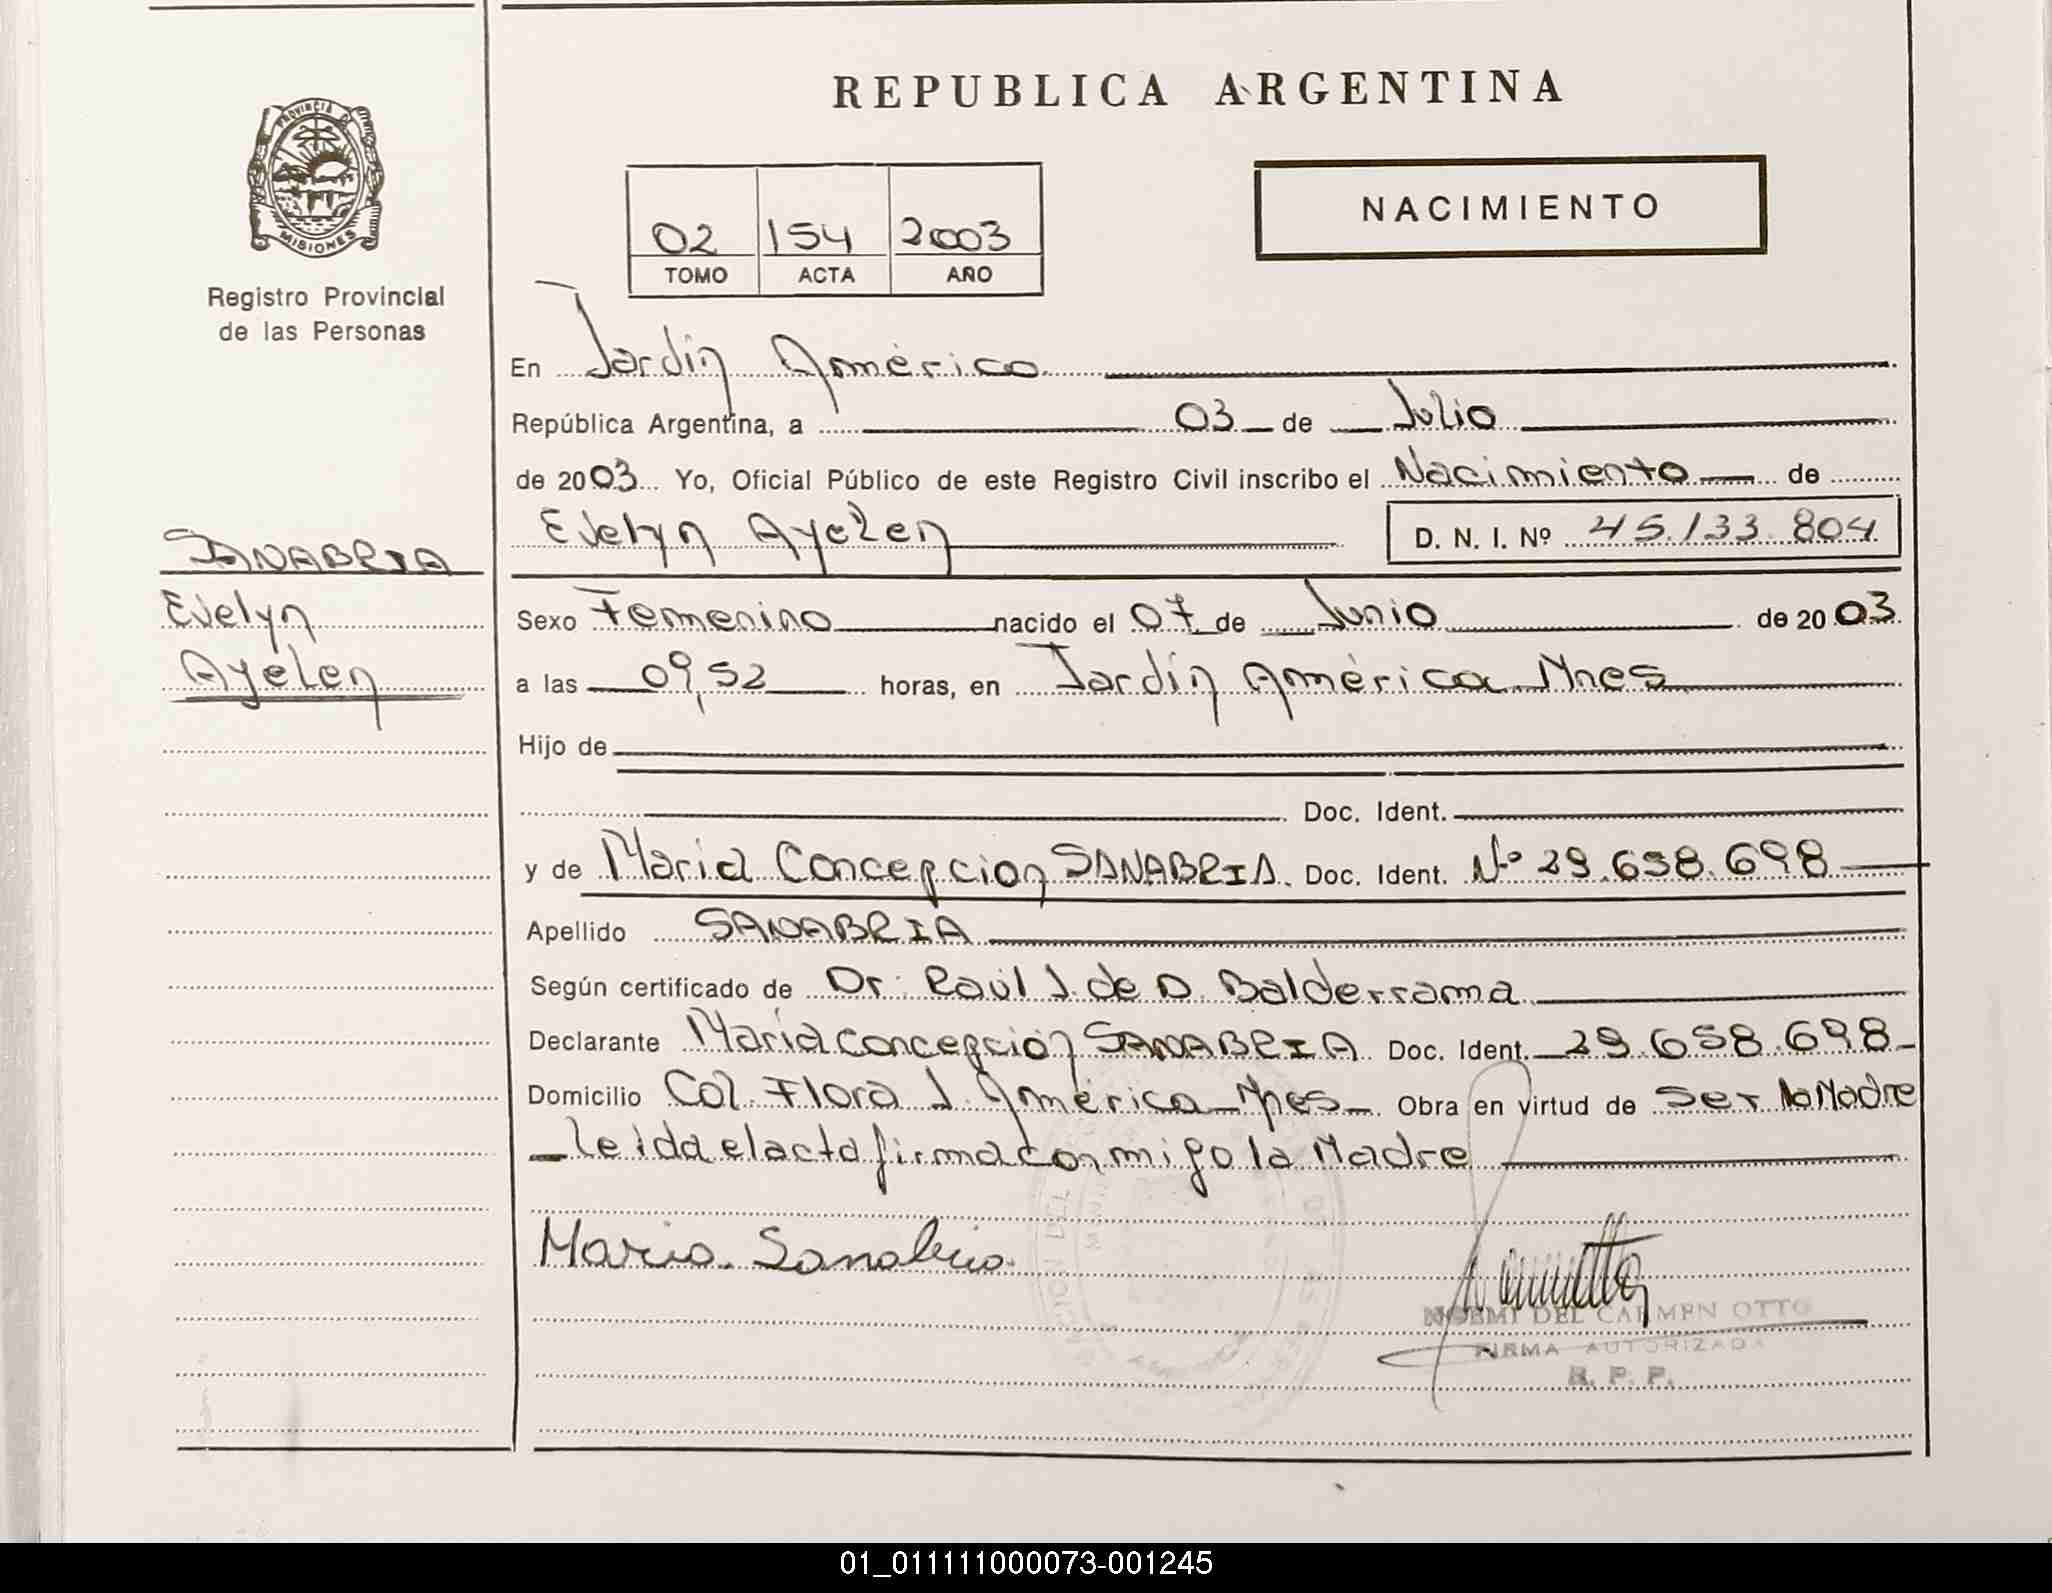 REPUBLICA ARGENTINA
PROVINCIA DE
MISIONES
Registro Provincial
de las Personas
02 154 2003
TOMO ACTA AÑO
NACIMIENTO
En Jardín América
República Argentina, a 03 de Julio
de 2003 Yo, Oficial Público de este Registro Civil inscribo el Nacimiento de
Evelyn Ayelen D. N. I. Nº 45.133.804
SANABRIA
Evelyn
Ayelen
Sexo Femenino nacido el 07 de Junio de 2003
a las 09,52 horas, en Jardín América Mnes
Hijo de
Doc. Ident.
y de María Concepcion SANABRIA. Doc. Ident. Nº 29.658.698
Apellido SANABRIA
Según certificado de Dr. Raúl J. de D. Balderrama
Declarante María Concepción SANABRIA Doc. Ident. 29.658.698
Domicilio Col. Flora J. América Mnes Obra en virtud de Ser la Madre
Leida el acta firma conmigo la Madre
Maria Sanabria
NOEMI DEL CARMEN OTTO
FIRMA AUTORIZADA
R. P. P.
01_011111000073-001245